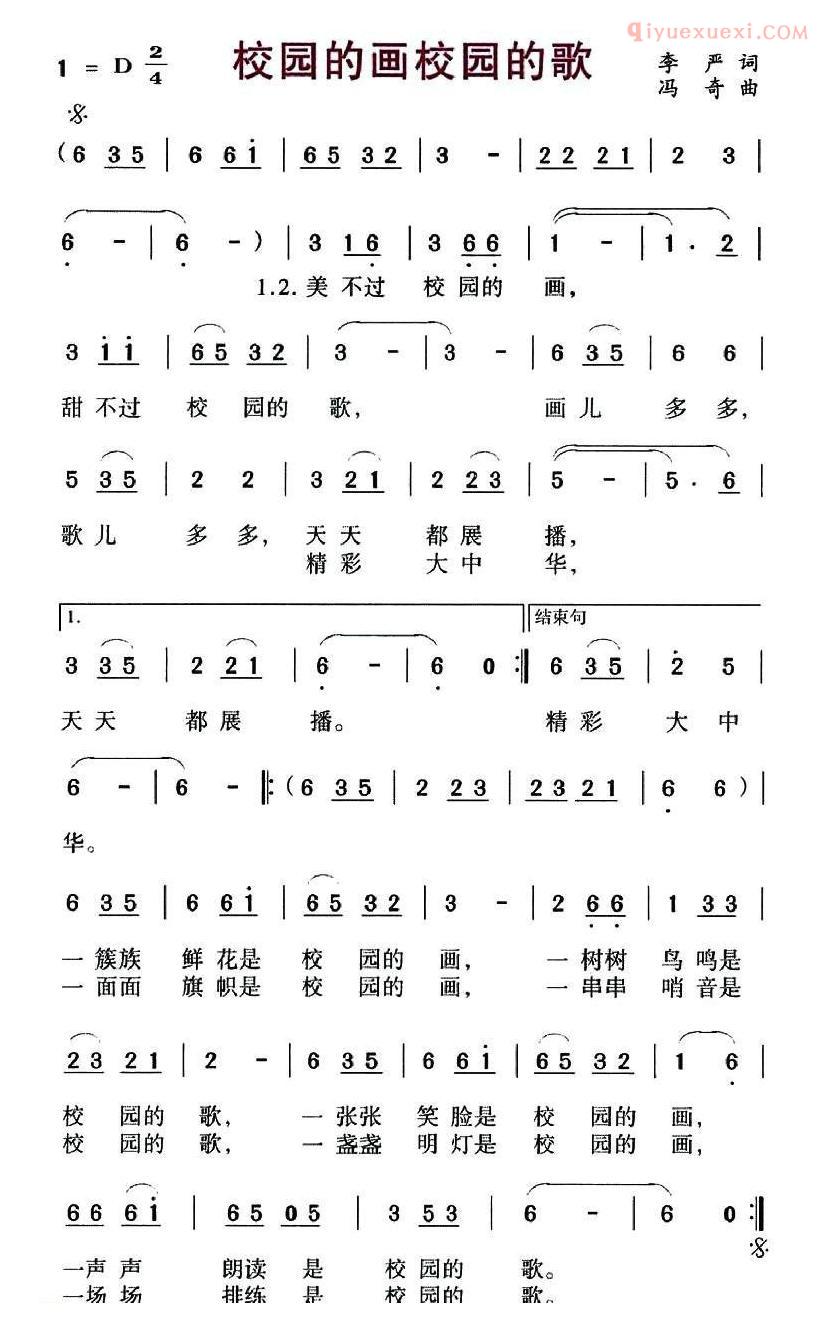 qiyuexuexi.com
1 = D 2/4
校园的画校园的歌
李 严 词
冯 奇 曲
( 6 3 5 | 6 6 i | 6 5 3 2 | 3 - | 2 2 2 1 | 2 3 |
6 - | 6 - ) | 3 1 6 | 3 6 6 | 1 - | 1 . 2 |
1.2. 美 不过 校 园的 画,
3 i i | 6 5 3 2 | 3 - | 3 - | 6 3 5 | 6 6 |
甜 不过 校 园的 歌, 画儿 多 多,
5 3 5 | 2 2 | 3 2 1 | 2 2 3 | 5 - | 5 . 6 |
歌儿 多 多, 天 天 都 展 播,
精 彩 大 中 华,
1. 结束句
3 3 5 | 2 2 1 | 6 - | 6 0 :| 6 3 5 | 2 5 |
天 天 都 展 播。 精 彩 大 中
6 - | 6 - |: ( 6 3 5 | 2 2 3 | 2 3 2 1 | 6 6 ) |
华。
6 3 5 | 6 6 i | 6 5 3 2 | 3 - | 2 6 6 | 1 3 3 |
一 簇族 鲜 花是 校 园的 画, 一 树树 鸟 鸣是
一 面面 旗 帜是 校 园的 画, 一 串串 哨 音是
2 3 2 1 | 2 - | 6 3 5 | 6 6 i | 6 5 3 2 | 1 6 |
校 园的 歌, 一 张张 笑 脸是 校 园的 画,
校 园的 歌, 一 盏盏 明 灯是 校 园的 画,
6 6 6 i | 6 5 0 5 | 3 5 3 | 6 - | 6 0 :|
一声 声 朗读 是 校 园的 歌。
一场 场 排练 是 校 园的 歌。